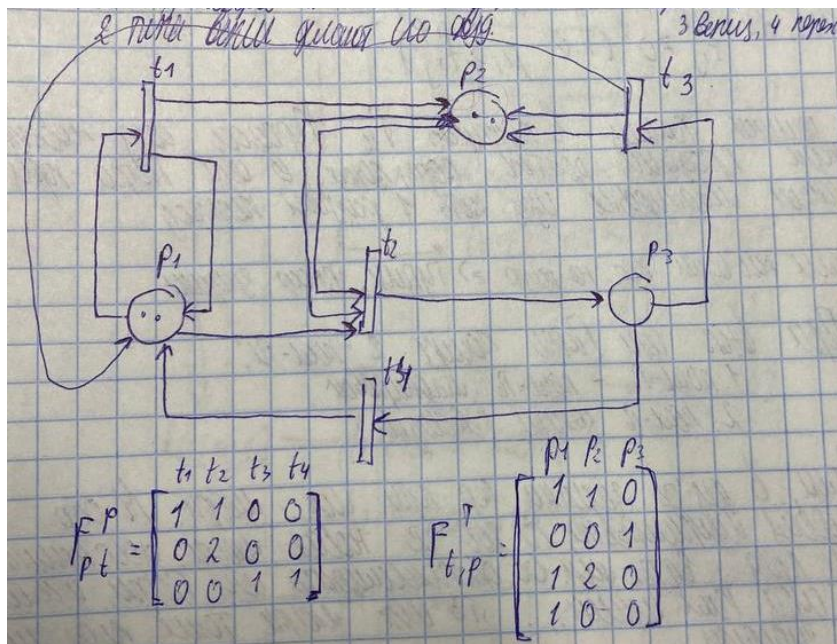 2 типа
3 верш, 4 перех
t1
p2
t3
t2
p1
p3
t4
t1 t2 t3 t4
F^P_pt = [1 1 0 0
0 2 0 0
0 0 1 1]
p1 p2 p3
F^T_t,p = [1 1 0
0 0 1
1 2 0
1 0 0]